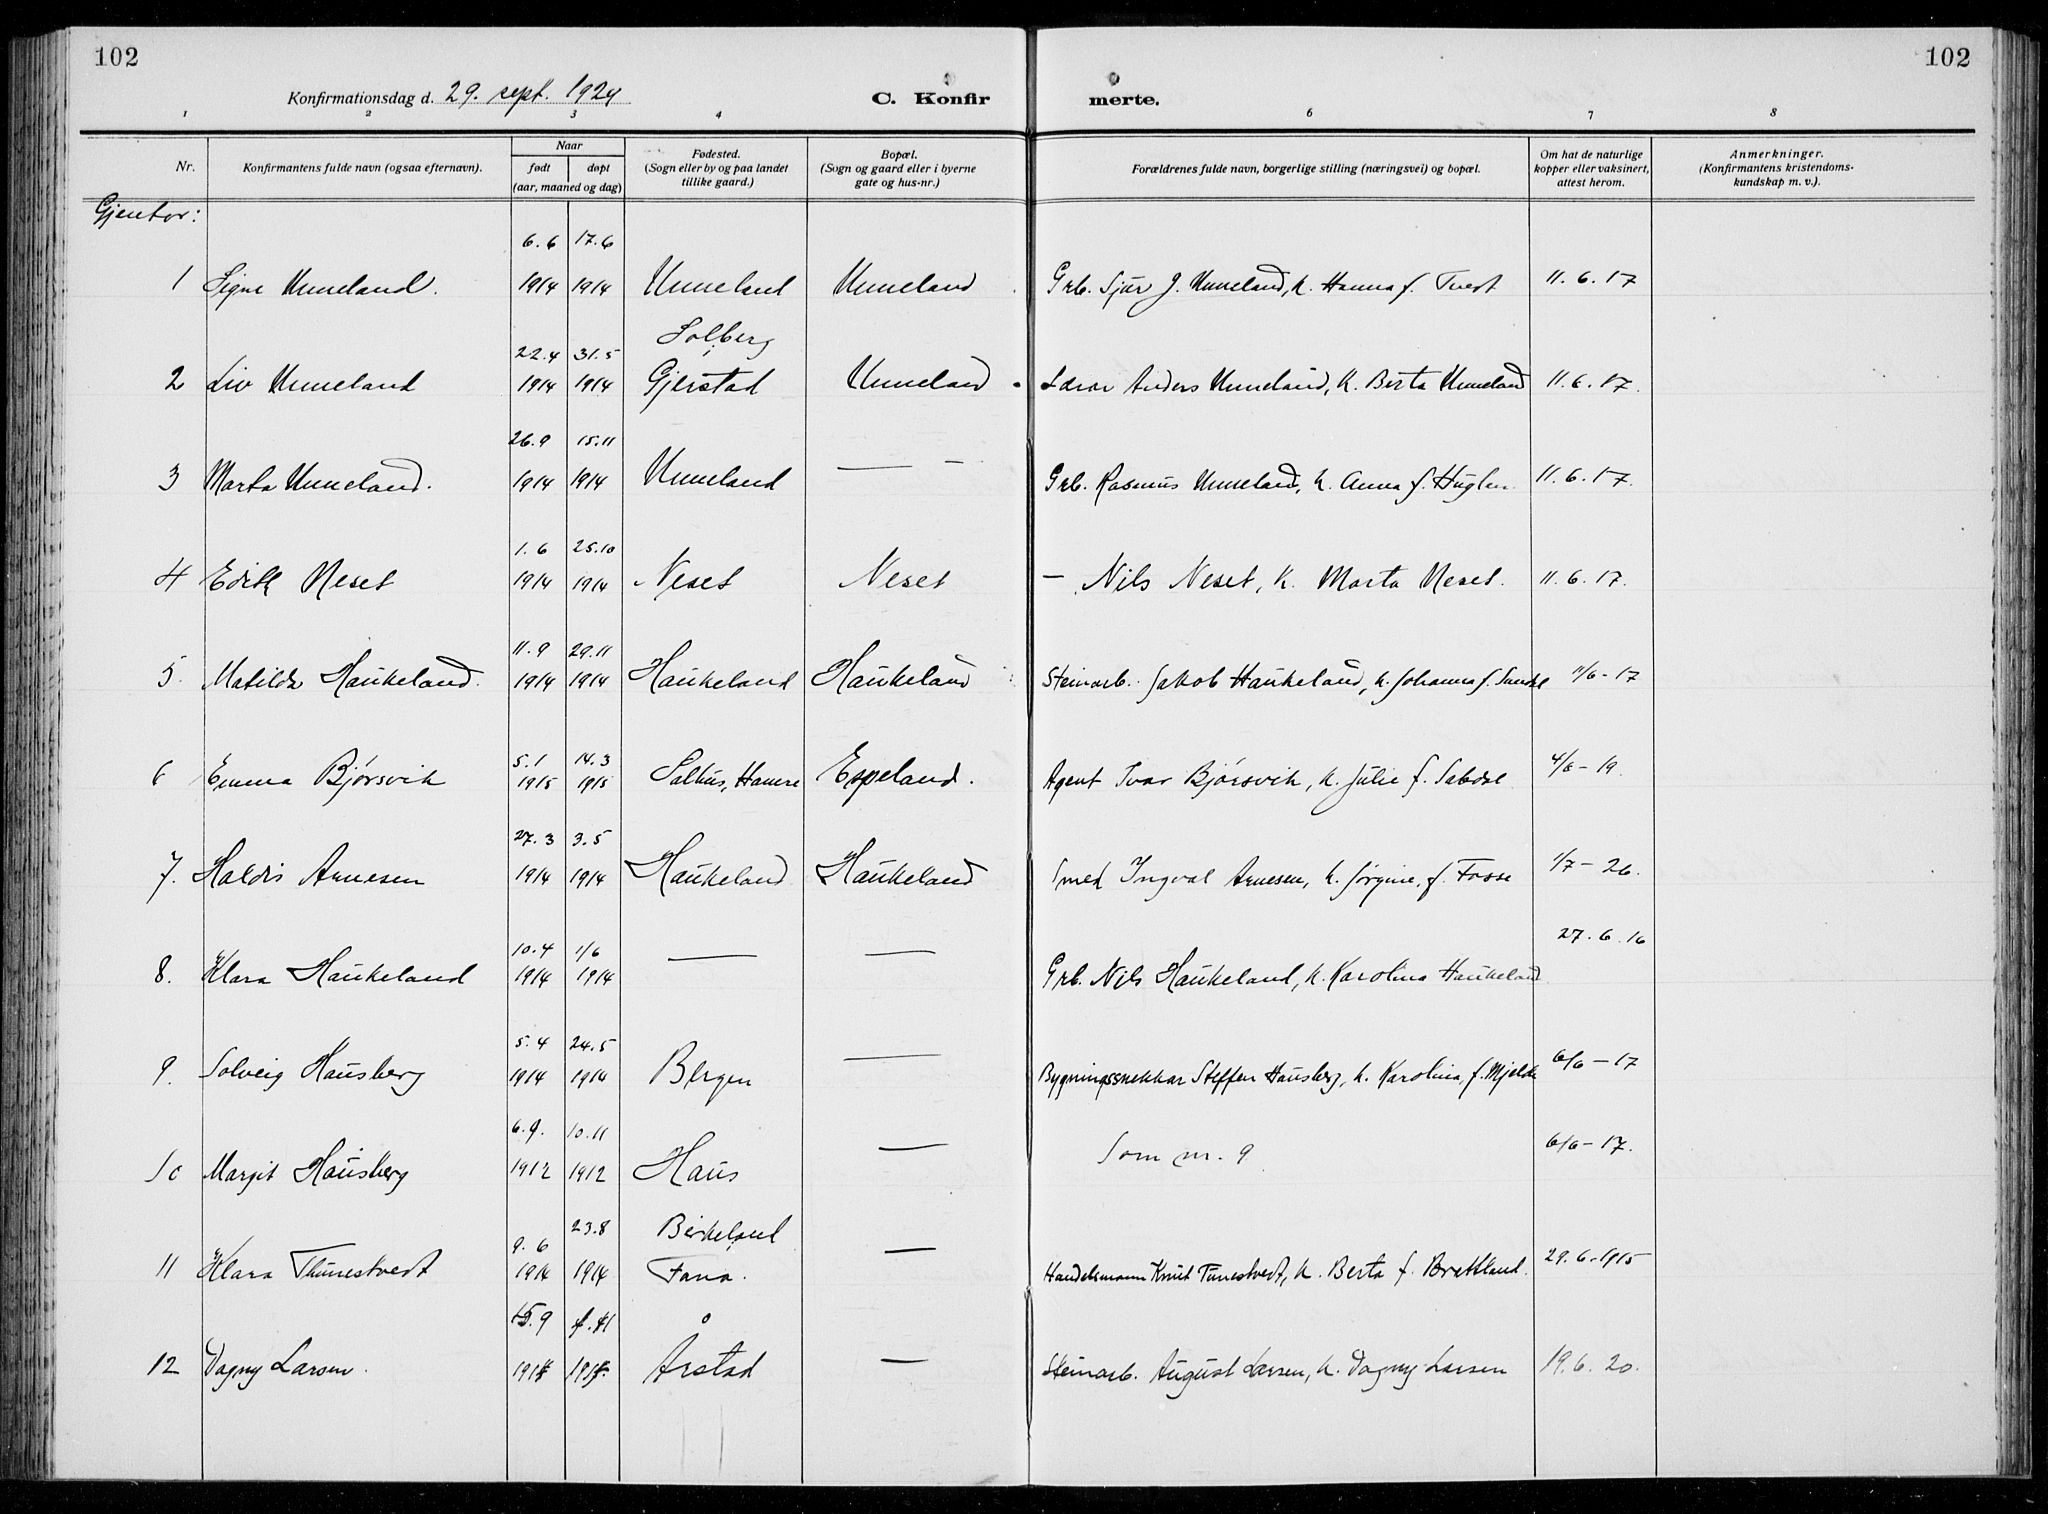 102
102
Konfirmationsdag d. 29. sept. 1929
C. Konfir merte.
1 2 3 4 6 7 8
Nr. Konfirmantens fulde navn (ogsaa efternavn). Naar født døpt (aar, maaned og dag) Fødested. (Sogn eller by og paa landet tillike gaard.) Bopæl. (Sogn og gaard eller i byerne gate og hus-nr.) Forældrenes fulde navn, borgerlige stilling (næringsvei) og bopæl. Om hat de naturlige kopper eller vaksinert, attest herom. Anmerkninger. (Konfirmantens kristendoms-kundskap m. v.).
Gjentor:
6.6 17.6
1 Signe Unneland. 1914 1914 Unneland Unneland Grb. Sjur J. Unneland, k. Hanna f. Tvedt 11.6.17
22.4 31.5 Solberg
2 Liv Unneland 1914 1914 Gjerstad Unneland Lærar Anders Unneland, k. Berta Unneland 11.6.17.
26.9 15.11
3 Marta Unneland. 1914 1914 Unneland — - Grb. Rasmus Unneland, k. Anna f. Huglen. 11.6.17.
1.6 25.10
4 Edith Neset 1914 1914 Neset Neset — Nils Neset, k. Marta Neset. 11.6.17.
11.9 29.11
5. Matilda Haukeland. 1914 1914 Haukeland Haukeland Steinarb. Jakob Haukeland, k. Johanna f. 11/6-17
5.1 14.3
6 Emma Bjørsvik 1915 1915 Salhus, Hamre Espeland. Agent Ivar Bjørsvik, k. Julie f. 4/6-19.
27.3 3.5
7. Haldis Arnesen 1914 1914 Haukeland Haukeland Smed Ingval Arnesen, k. Jørgine, f. Fosse 1/7-26.
10.4 1/6 27.6.16
8. Klara Haukeland 1914 1914 — — Grb. Nils Haukeland, k. Karolina Haukeland
5.4 24.5
9. Solveig Hausberg 1914 1914 Bergen — Bygningssnekkar Steffen Hausberg, k. Karolina, f. Mjelde 6/6-17
6.9. 10.11
10 Margit Hausberg 1912 1912 Haus — Som nr. 9 6/6-17.
9.6 23.8 Birkeland
11 Klara Thunestvedt 1914 1914 Fana. — Handelsmann Knut Tunestvedt, k. Berta f. Brekkland. 29.6.1915
15.9
12 Dagny Larsen. Årstad — Steinarb. August Larsen, k. Dagny Larsen 19.6.20.